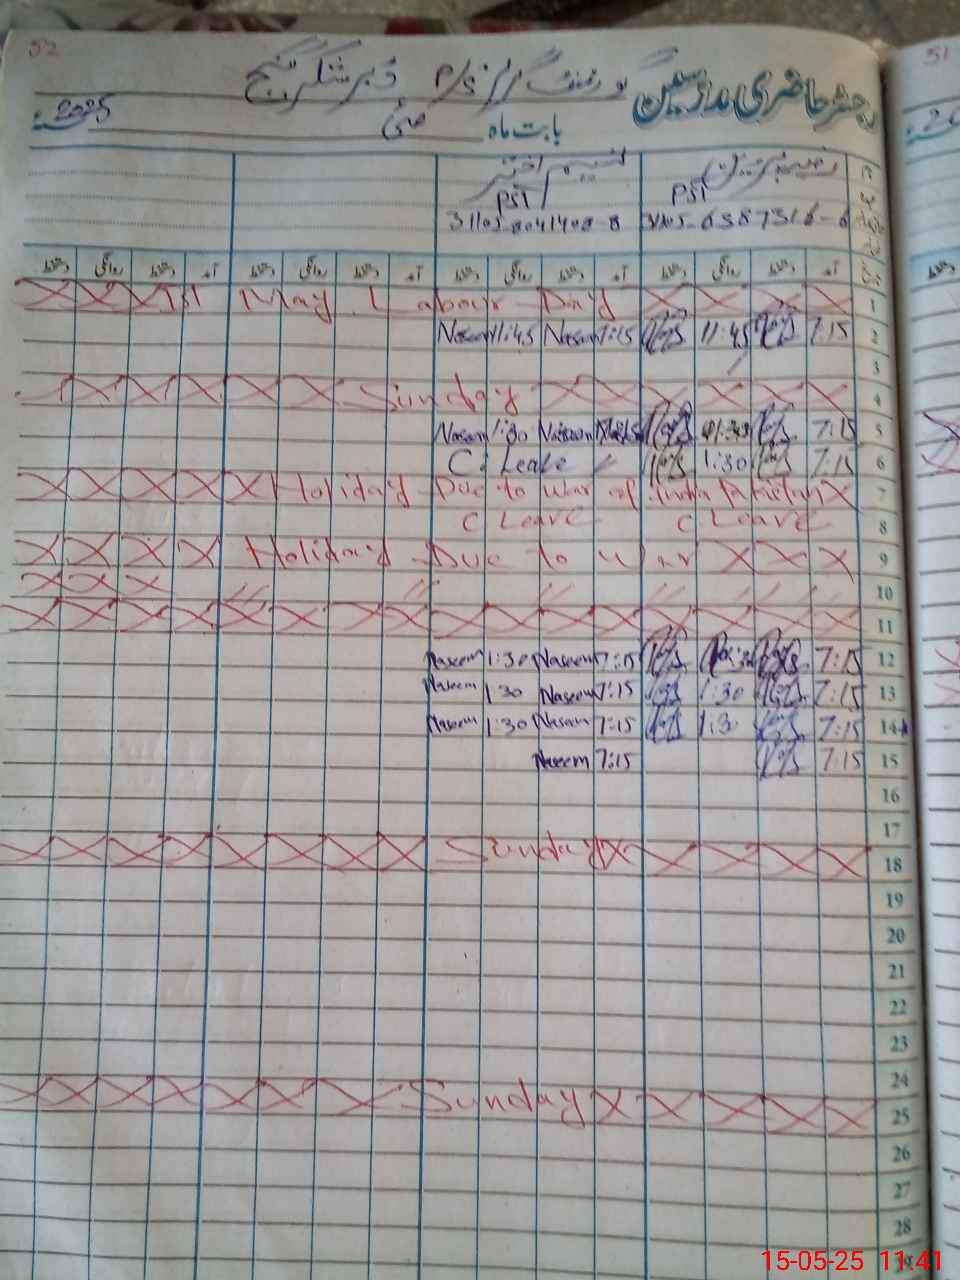 52
51
رجسٹر حاضری مدرسین گورنمنٹ گرلز P/S
بابت ماہ مئی 2025
نسیم اختر
PST PST
31105-8041408-8 31105-6387316-6
دستخط روانگی دستخط آمد دستخط روانگی دستخط آمد دستخط روانگی دستخط آمد دستخط روانگی دستخط آمد
1st May Labour Day 1
Naseem 11:45 Naseem 7:15 11:45 7:15 2
3
Sunday 4
Naseem 1:30 Naseem 7:15 5
C. Leave 1:30 7:15 6
Holiday Due to war of India Pakistan 7
C Leave C Leave 8
Holiday Due to war 9
10
11
Naseem 1:30 Naseem 7:15 7:15 12
Naseem 1:30 Naseem 7:15 1:30 7:15 13
Naseem 1:30 Naseem 7:15 1:3 7:15 14
Naseem 7:15 7:15 15
16
17
Sunday 18
19
20
21
22
23
24
Sunday 25
26
27
28
15-05-25 11:41